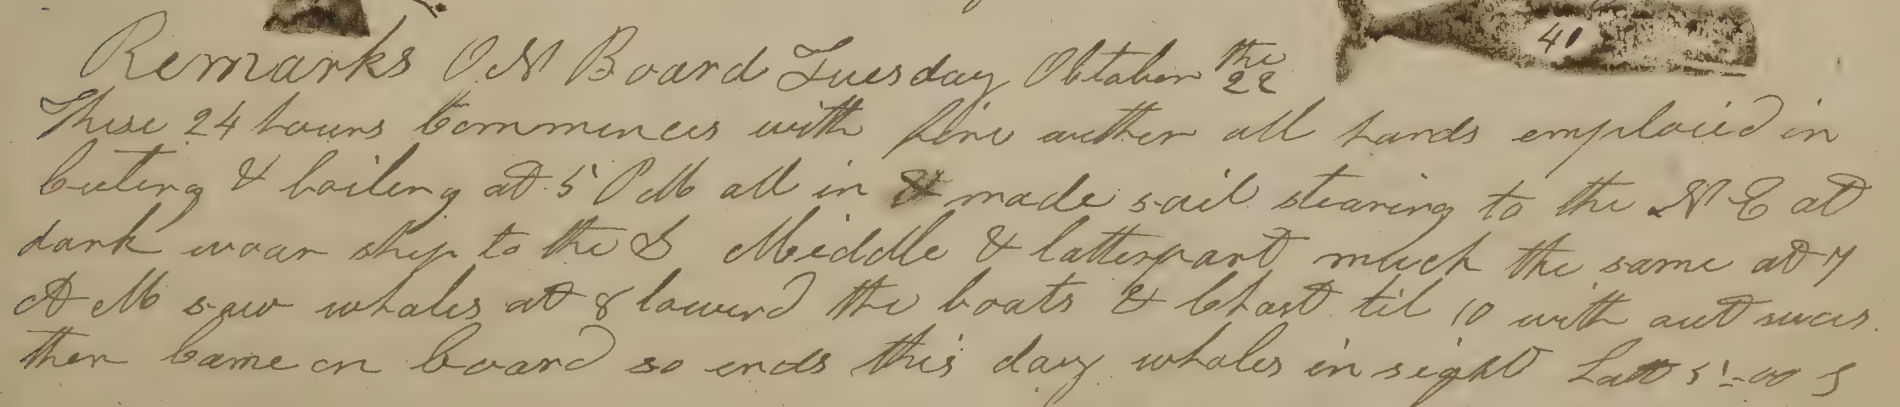 41
Remarks On Board Tuesday October the 22
These 24 hours Commences with fine wether all hands emploied in
Cuting & boiling at 5 PM all in & made sail stearing to the N E at
dark woar ship to the S Middle & latterpart much the same at 7
A M saw whales at 8 lowerd the boats & Chast til 10 with out suces
then Came on board so ends this day whales in sight Latt 5-00 S